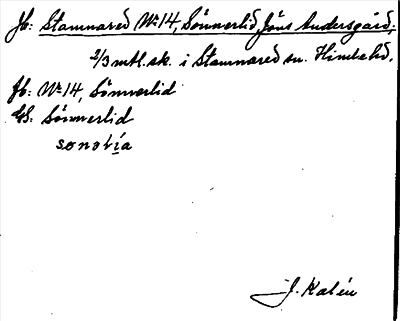 Jb: Stamnared No 14, Sönnerlid Jöns Andersgård;
2/3 mtl. sk. i Stamnared sn. Himle hd.
Jb: No 14, Sönnerlid
GS: Sönnerlid
sonəlía
J. Kalén